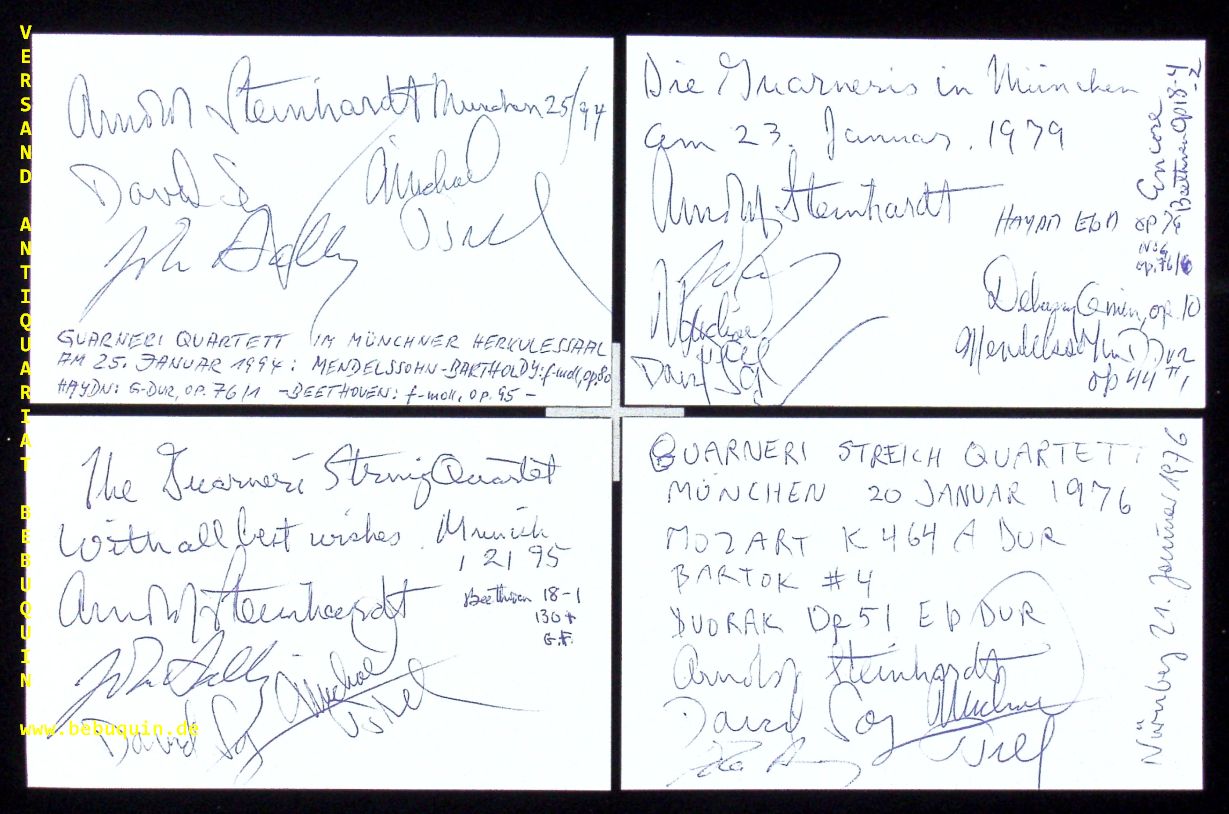 VERSAND ANTIQUARIAT BEBUQUIN
Arnold Steinhardt München 25/94
David Soyer
Michael
John Dalley
Tree
GUARNERI QUARTETT IM MÜNCHNER HERKULESSAAL
AM 25. JANUAR 1994: MENDELSSOHN-BARTHOLDY: f-moll, op. 80
HAYDN: G-DUR, OP. 76/1 - BEETHOVEN: f-moll, OP. 95 -
Die Guarneris in München
am 23. Januar. 1979
Arnold Steinhardt
HAYDN
op 76
op. 76/6
Encore
Beethoven Op 18-4
John
Michael
Tree
David Soyer
op. 10
Mendelssohn D Dur
op 44 #1
The Guarneri String Quartet
With all best wishes. Munich
1 21 95
Arnold Steinhardt
Beethoven 18-1
130 +
G.F.
John Dalley
Michael
Tree
David Soyer
www.bebuquin.de
GUARNERI STREICH QUARTETT
MÜNCHEN 20 JANUAR 1976
MOZART K 464 A DUR
BARTOK #4
DVORAK Op 51 Eb DUR
Arnold Steinhardt
David Soyer Michael
Tree
John
Nürnberg 21. Januar 1976